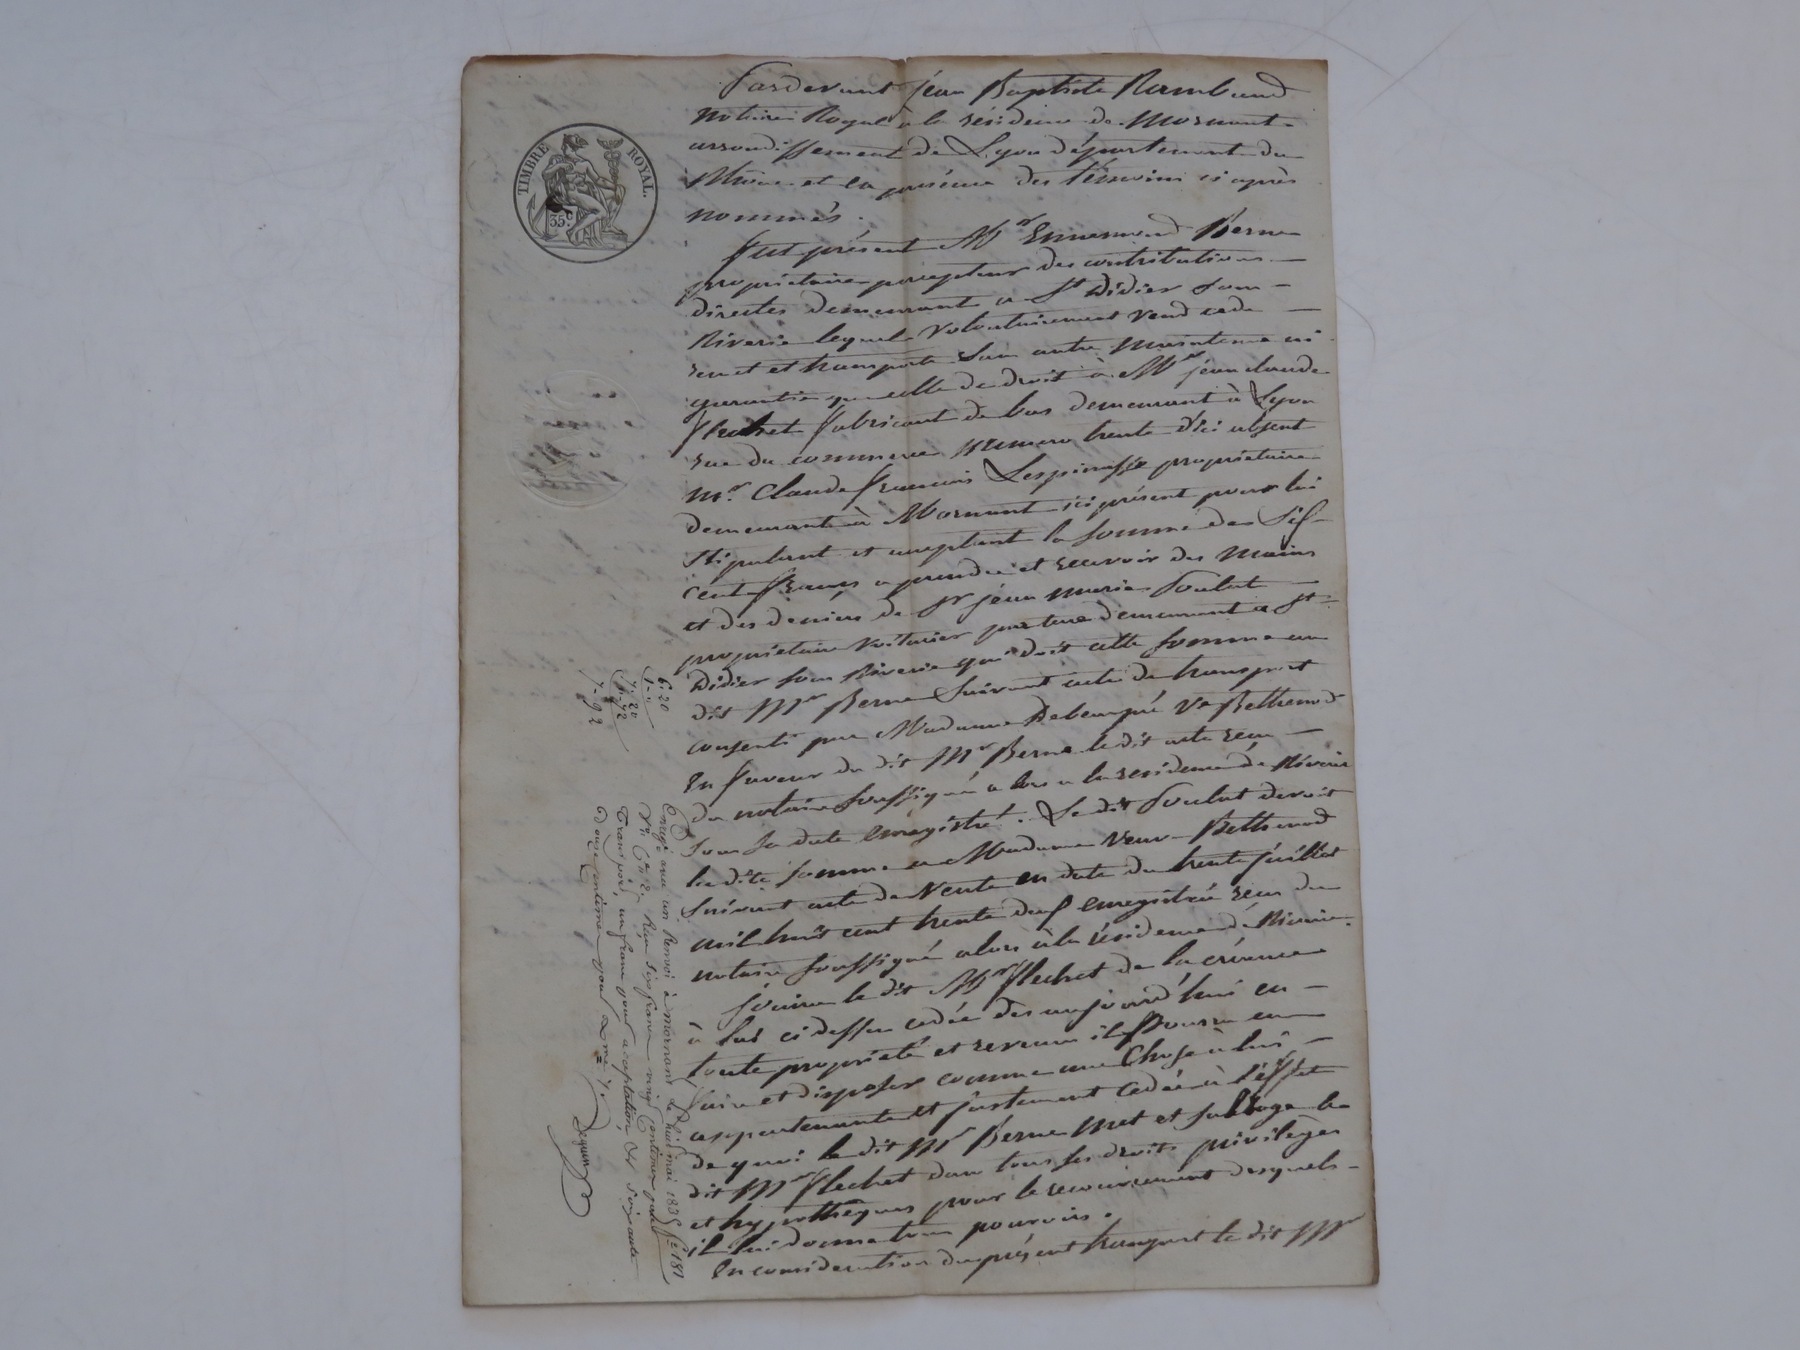 TIMBRE ROYAL.
35c.
Pardevant jean Baptiste Rambaud
Notaire Royal à la résidence de Mornant
arrondissement de Lyon département du
Rhône et en présence des témoins ci après
nommés.
fut présent Mr Ennemond Berne
propriétaire percepteur des contributions
directes demeurant a St Didier sous
Riverie lequel volontairement vend cede
remet et transporte sans autre maintenue ni
garantie que celle de droit à Mr jean claude
flechet fabricant de bas demeurant à Lyon
rue du commerce numero trente d'ici absent
Mr. Claude françois Lespinasse propriétaire
demeurant à Mornant ici présent pour lui
stipulant et acceptant la somme de six
cent francs a prendre et recevoir des mains
et des deniers de Sr jean marie Soulat
propriétaire voiturier par terre demeurant a St
Didier sous Riverie qui doit cette somme au
dit Mr Berne suivant acte de transport
consenti par Madame Ve Bethenod
en faveur du dit Mr Berne le dit acte recu
du notaire soussigné alors a la residence de Riverie
sous sa date enregistré. Le dit Soulat devait
la dite somme a Madame veuve Bethenod
suivant acte de vente en date du trente juillet
mil huit cent trente deux enregistré recu du
notaire soussigné alors à la résidence de Riverie.
Saisira le dit Mr flechet de la créance
à lui ci dessus cedée des aujourd'hui en
toute propriété et revenu il pourra en
jouir et disposer comme une chose à lui
appartenante et justement cedée à l'effet
de quoi le dit Mr Berne met et subroge le
dit Mr flechet dans tous ses droits privileges
et hypothèques pour le recouvrement desquels
il lui donne tous pouvoirs.
En consideration du présent transport le dit Mr
6-20
1-"
7-20
72
7-92
Enregé avec un Renvoi à mornant le huit mai 1835 fo 181
Vo Ce 2 Reçu six francs vingt centimes pour
Transport, un franc pour acceptation & soixante
Douze centimes pour